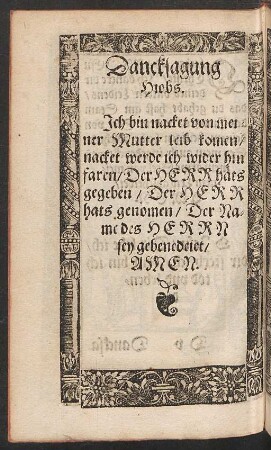 Dancksagung
Hiobs.
Ich bin nacket von mei
ner Mutter leib komen/
nacket werde ich wider hin
faren/ Der HERR hats
gegeben / Der HERR
hats genomen/ Der Na-
me des HERRN
sey gebenedeiet/
AMEN.